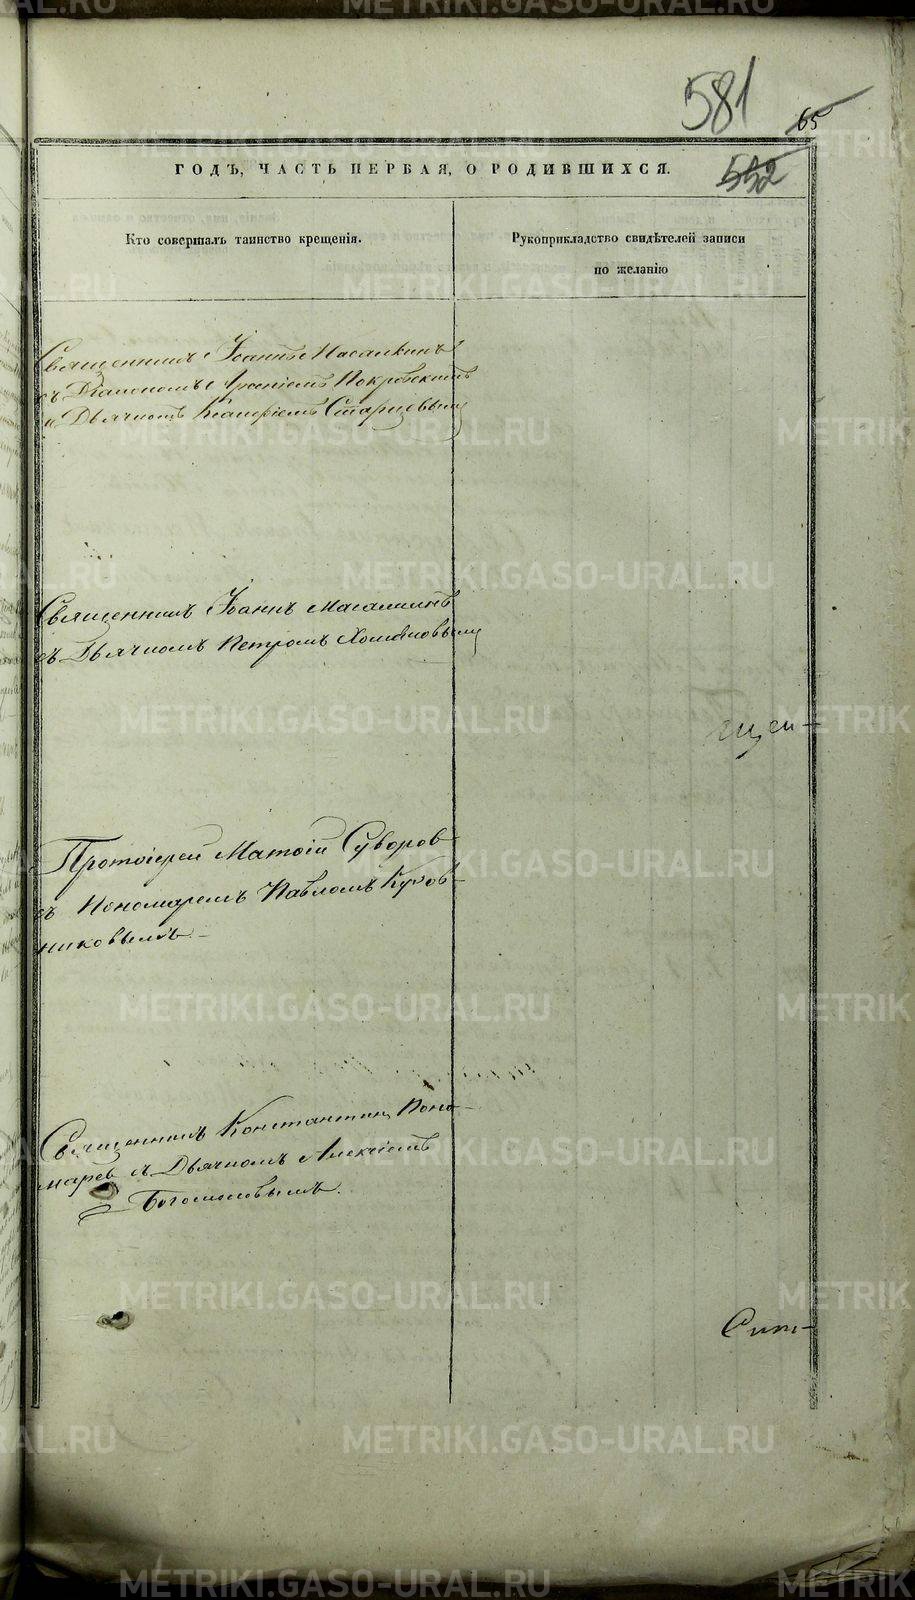 581
65
552
ГОДЪ, ЧАСТЬ ПЕРВАЯ, О РОДИВШИХСЯ.
Кто совершалъ таинство крещенія.
Рукоприкладство свидѣтелей записи
по желанію
Священникъ Іоаннъ
съ Діакономъ Покровскимъ
и Дьячкомъ Старцевымъ
Священникъ Іоаннъ
съ Дьячкомъ Петромъ Хомяковымъ
Протоіерей Матѳій Суворов
съ Пономаремъ Павломъ Кухов-
никовымъ
Священникъ Константинъ Поно-
марев съ Дьячкомъ Алексіемъ
Богомоловымъ.
METRIKI.GASO-URAL.RU